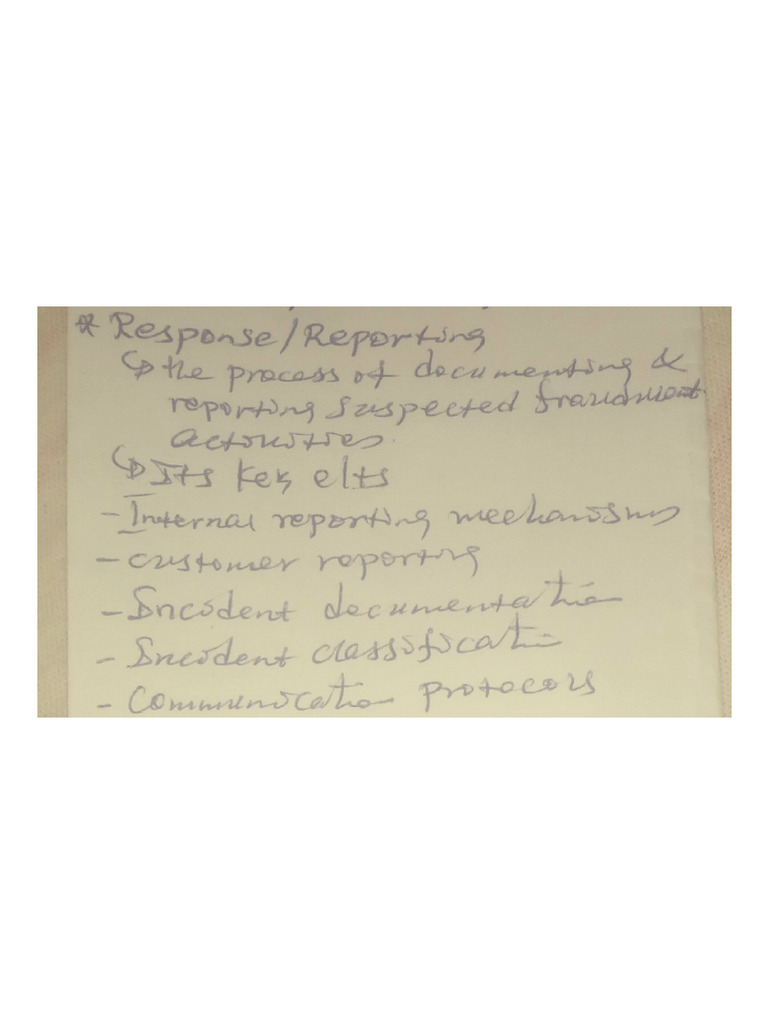 * Response/Reporting
↳ the process of documenting &
reporting suspected fraudulent
activities.
↳ Its key elts
- Internal reporting mechanisms
- customer reporting
- Incident documentation
- Incident classification
- Communication protocols